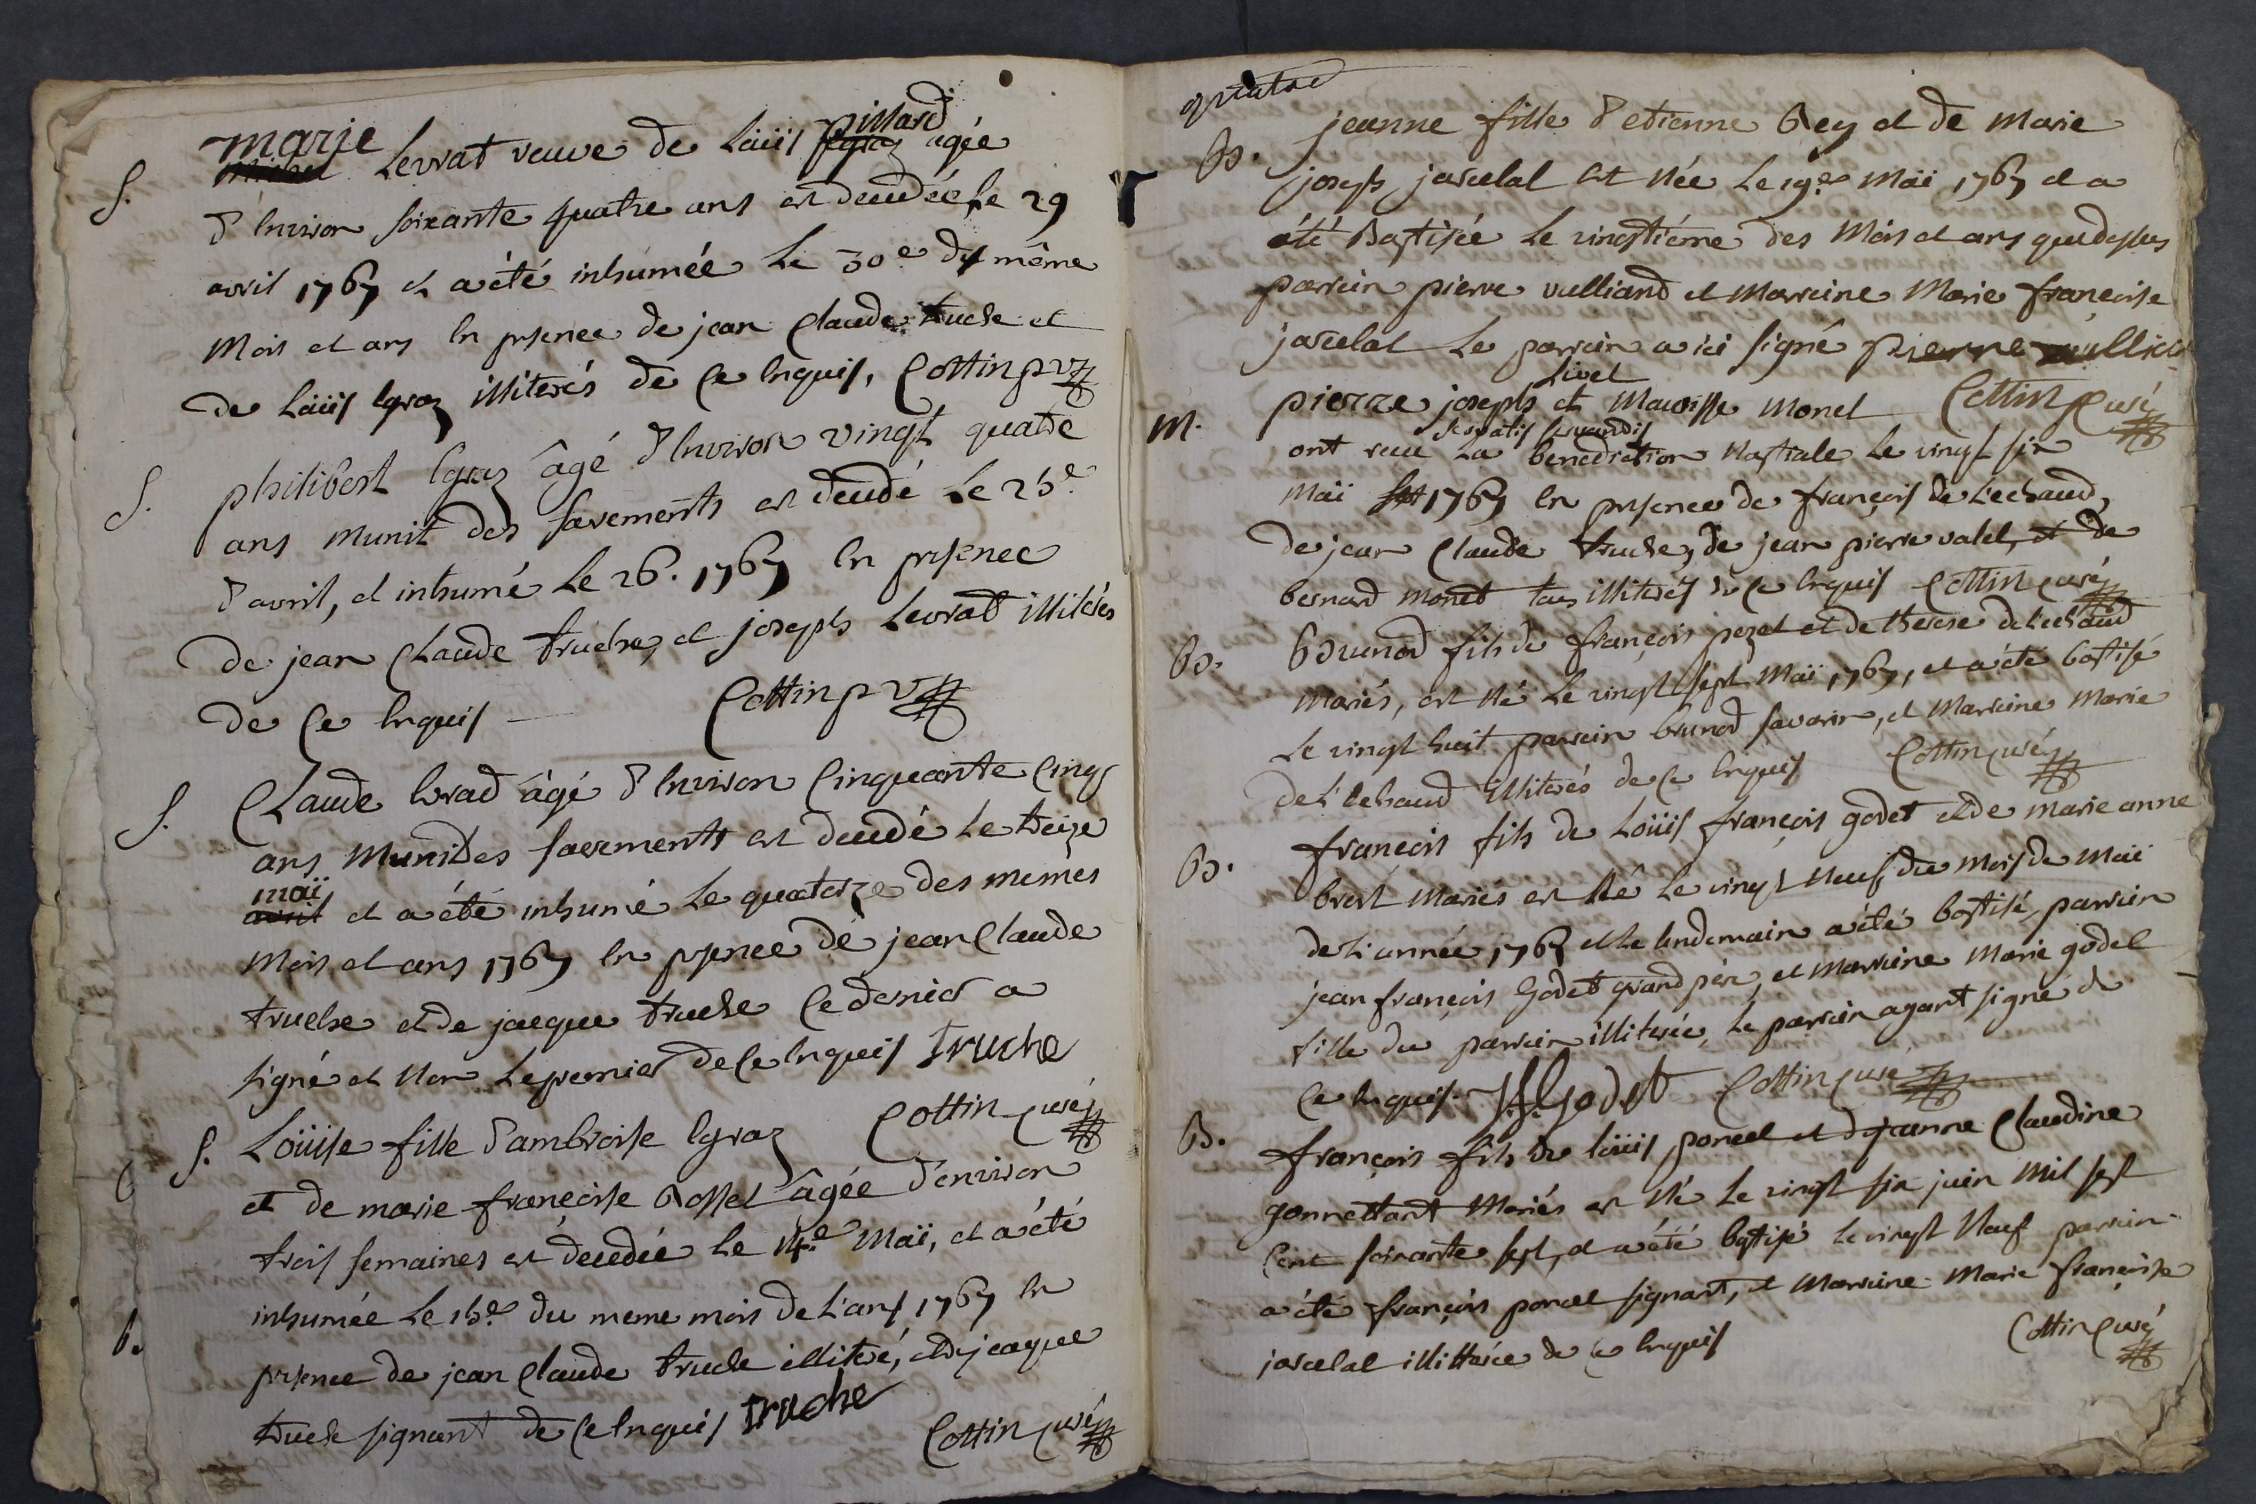 marie pillard
S. Levrat veuve de Loüis âgée
d'environ soixante quatre ans est decedée le 29
avril 1767 et a été inhumée Le 30e du même
Mois et ans en psence de jean Claude truche et
de Loüis Egraz illiterés de ce enquis, Cottin
S. philibert Egraz âgé d'environ vingt quatre
ans munit des sacrements est decedé Le 25e
d'avril, et inhumé Le 26. 1767 en psence
de jean Claude truche, et joseph Levrat illiterés
de ce enquis Cottin
S. Claude âgé d'environ Cinquante Cinq
ans Munit des sacrements est decedé Le treize
maï
avril et a été inhumé Le quatorze des mêmes
Mois et ans 1767 en psence de jean Claude
truche et de jacque truche Ce dernier a
signé et non Le premier de Ce enquis truche
Cottin curé
S. Loüise fille d'ambroise Egraz
et de marie françoise Rosset âgée d'environ
trois semaines est decedée Le 14e Maï, et a été
inhumée Le 15e du meme mois de L'ans 1767 en
psence de jean Claude truche illiteré, et de jacque
truche signant de Ce enquis truche
Cottin curé
b.
quatre
B. jeanne fille d'etienne Rey et de Marie
joseph jarcelat est Née Le 19e Maï 1767 et a
été Baptisée Le vingtiéme des Mois et ans que dessus
parrain pierre vulliand et Marraine Marie françoise
jarcelat Le parrain a ici signé pierre
Livet
M. pierre joseph et Maurisse Monet Cottin Curé
servatis servandis
ont reçu La benediction Nuptiale Le vingt six
Maï 1767 en psence de françois de Lechaud,
de jean Claude truche, de jean pierre valet, et de
bernard Monet tous illiterés de Ce enquis Cottin curé
B. Brunod fils de françois pezet et de therese de Lechaud
Mariés, est Né Le vingt sept Maï 1767, et a été baptisé
Le vingt huit parrain brunod savarin, et Marraine Marie
de L'echaud illiterés de Ce enquis Cottin curé
B. françois fils de Loüis françois godet et de marie anne
bret Mariés est Né Le vingt Neuf du Mois de Maï
de L'année 1767 et Le lendemain a été baptisé, parrain
jean françois Godet grand pére, et Marraine Marie godet
fille du parrain illiterée, Le parrain ayant signé de
Ce enquis. Godet Cottin curé
B. françois fils de Loüis poncet et de jeanne Claudine
gonnettant Mariés est Né Le vingt six juin Mil sept
Cent soixante sept, et a été baptisé Le vingt Neuf parrain
a été françois poncet signant, et Marraine Marie françoise
jarcelat illitterée de Ce enquis Cottin Curé